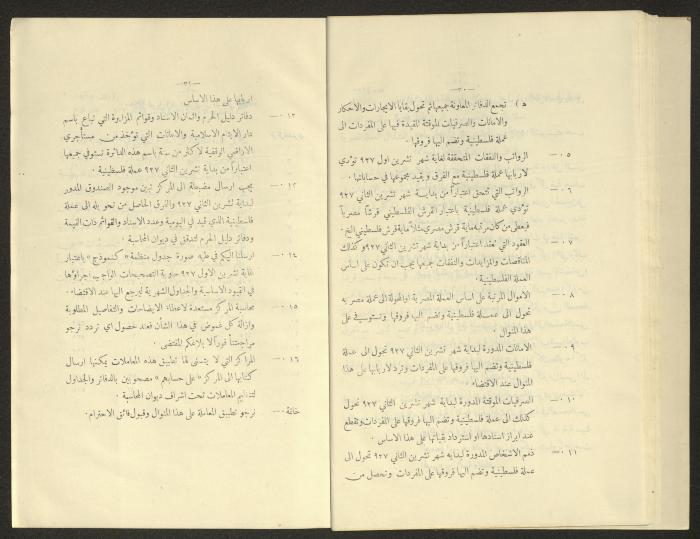 — ٣٠ —
ه) تجمع الدفاتر المعاونة جميعها ثم تحول بقايا الايجارات والاحكار
والامانات والصرفيات الموقتة المقيدة فيها على المفردات الى
عملة فلسطينية وتضم اليها فروقها .
٥ — الرواتب والنفقات المتحققة لغاية شهر تشرين اول ٩٢٧ تؤدي
لاربابها عملة فلسطينية مع الفرق ويقيد مجموعها في حساباتها .
٦ — الرواتب التي تتحقق اعتباراً من بداية شهر تشرين الثاني ٩٢٧
تؤدي عملة فلسطينية باعتبار القرش الفلسطيني قرشاً مصرياً
فيعطى من كان مرتبه ماية قرش مصري مثلاً ماية قرش فلسطيني الخ .
٧ — العقود التي تعقد اعتباراً من بداية شهر تشرين الثاني ٩٢٧ وكذلك
المناقصات والمزايدات والنفقات جميعها يجب ان تكون على اساس
العملة الفلسطينية .
٨ — الاموال المرتبة على اساس العملة المصرية او المحولة الى عملة مصرية
تحول الى عملة فلسطينية وتضم اليها فروقها وتستوفى على
هذا المنوال .
٩ — الامانات المدورة لبداية شهر تشرين الثاني ٩٢٧ تحول الى عملة
فلسطينية وتضم اليها فروقها على المفردات وترد لاربابها على هذا
المنوال عند الاقتضاء .
١٠ — الصرفيات الموقتة المدورة لبداية شهر تشرين الثاني ٩٢٧ تحول
كذلك الى عملة فلسطينية وتضم اليها فروقها على المفردات وتقطع
عند ابراز اسنادها او استرداد بقياتها على هذا الاساس .
١١ — ذمم الاشخاص المدورة لبداية شهر تشرين الثاني ٩٢٧ تحول الى
عملة فلسطينية وتضم اليها فروقها على المفردات وتحصل من
— ٣١ —
اربابها على هذا الاساس
١٢ — دفاتر دليل الحرم واثمان الاسناد وقوائم المزارة التي تباع باسم
دار الايتام الاسلامية والامانات التي تؤخذ من مستأجري
الاراضي الوقفية لاكثر من سنة باسم هذه الدائرة تستوفي جميعها
اعتباراً من بداية تشرين الثاني ٩٢٧ عملة فلسطينية .
١٣ — يجب ارسال مضبطة الى المركز تبين موجود الصندوق المدور
لبداية تشرين الثاني ٩٢٧ والفرق الحاصل من تحويله الى عملة
فلسطينية الذي قيد في اليومية وعدد الاسناد والقوائم ذات القيمة
ودفاتر دليل الحرم لتدقق في ديوان المحاسبة .
١٤ — ارسلنا اليكم في طيه صورة جدول منظمة «كنموذج» باعتبار
غاية تشرين الاول ٩٢٧ حاوية التصحيحات الواجب اجراؤها
في القيود الاساسية والجداول الشهرية ليرجع اليها عند الاقتضاء .
١٥ — محاسبة المركز مستعدة لاعطاء الايضاحات والتفاصيل المطلوبة
وازالة كل غموض في هذا الشأن فعند حصول اي تردد نرجو
مراجعتنا فوراً لابلاغكم المقتضى .
١٦ — المراكز التي لا يتسنى لها تطبيق هذه المعاملات يمكنها ارسال
كتابها الى المركز «على حسابهم» مصحوبين بالدفاتر والجداول
لتنظيم المعاملات تحت اشراف ديوان المحاسبة .
خاتمة — نرجو تطبيق المعاملة على هذا المنوال وقبول فائق الاحترام .